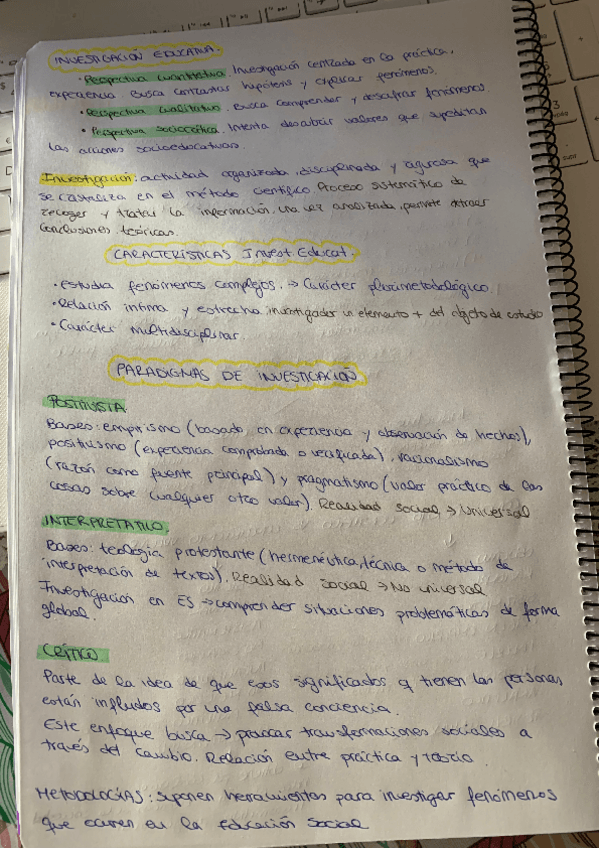 INVESTIGACIÓN EDUCATIVA.
· Perspectiva cuantitativa. Investigación centrada en la práctica,
experiencia. Busca contrastar hipótesis y explicar fenómenos.
· Perspectiva cualitativa. Busca comprender y descifrar fenómenos.
· Perspectiva sociocrítica. Intenta descubrir valores que supeditan
las acciones socioeducativas.
Investigación: actividad organizada, disciplinada y rigurosa que
se cristaliza en el método científico. Proceso sistemático de
recoger y tratar la información, una vez analizada, permite extraer
conclusiones teóricas.
CARACTERÍSTICAS Invest. Educat.
· Estudia fenómenos complejos. → Carácter plurimetodológico.
· Relación íntima y estrecha investigador un elemento + del objeto de estudio
· Carácter multidisciplinar
PARADIGMAS DE INVESTIGACIÓN
POSITIVISTA
Bases: empirismo (basado en experiencia y observación de hechos),
positivismo (experiencia comprobada o verificada), racionalismo
(razón como fuente principal) y pragmatismo (valor práctico de las
cosas sobre cualquier otro valor). Realidad social → Universal
INTERPRETATIVO.
Bases: teología protestante (hermenéutica, técnica o método de
interpretación de textos). Realidad social → No universal
Investigación en ES → comprender situaciones problemáticas de forma
global.
CRÍTICO
Parte de la idea de que esos significados q tienen las personas
están influidos por una falsa conciencia.
Este enfoque busca → provocar transformaciones sociales a
través del cambio. Relación entre práctica y teoría.
METODOLOGÍAS: suponen herramientas para investigar fenómenos
que ocurren en la Educación Social